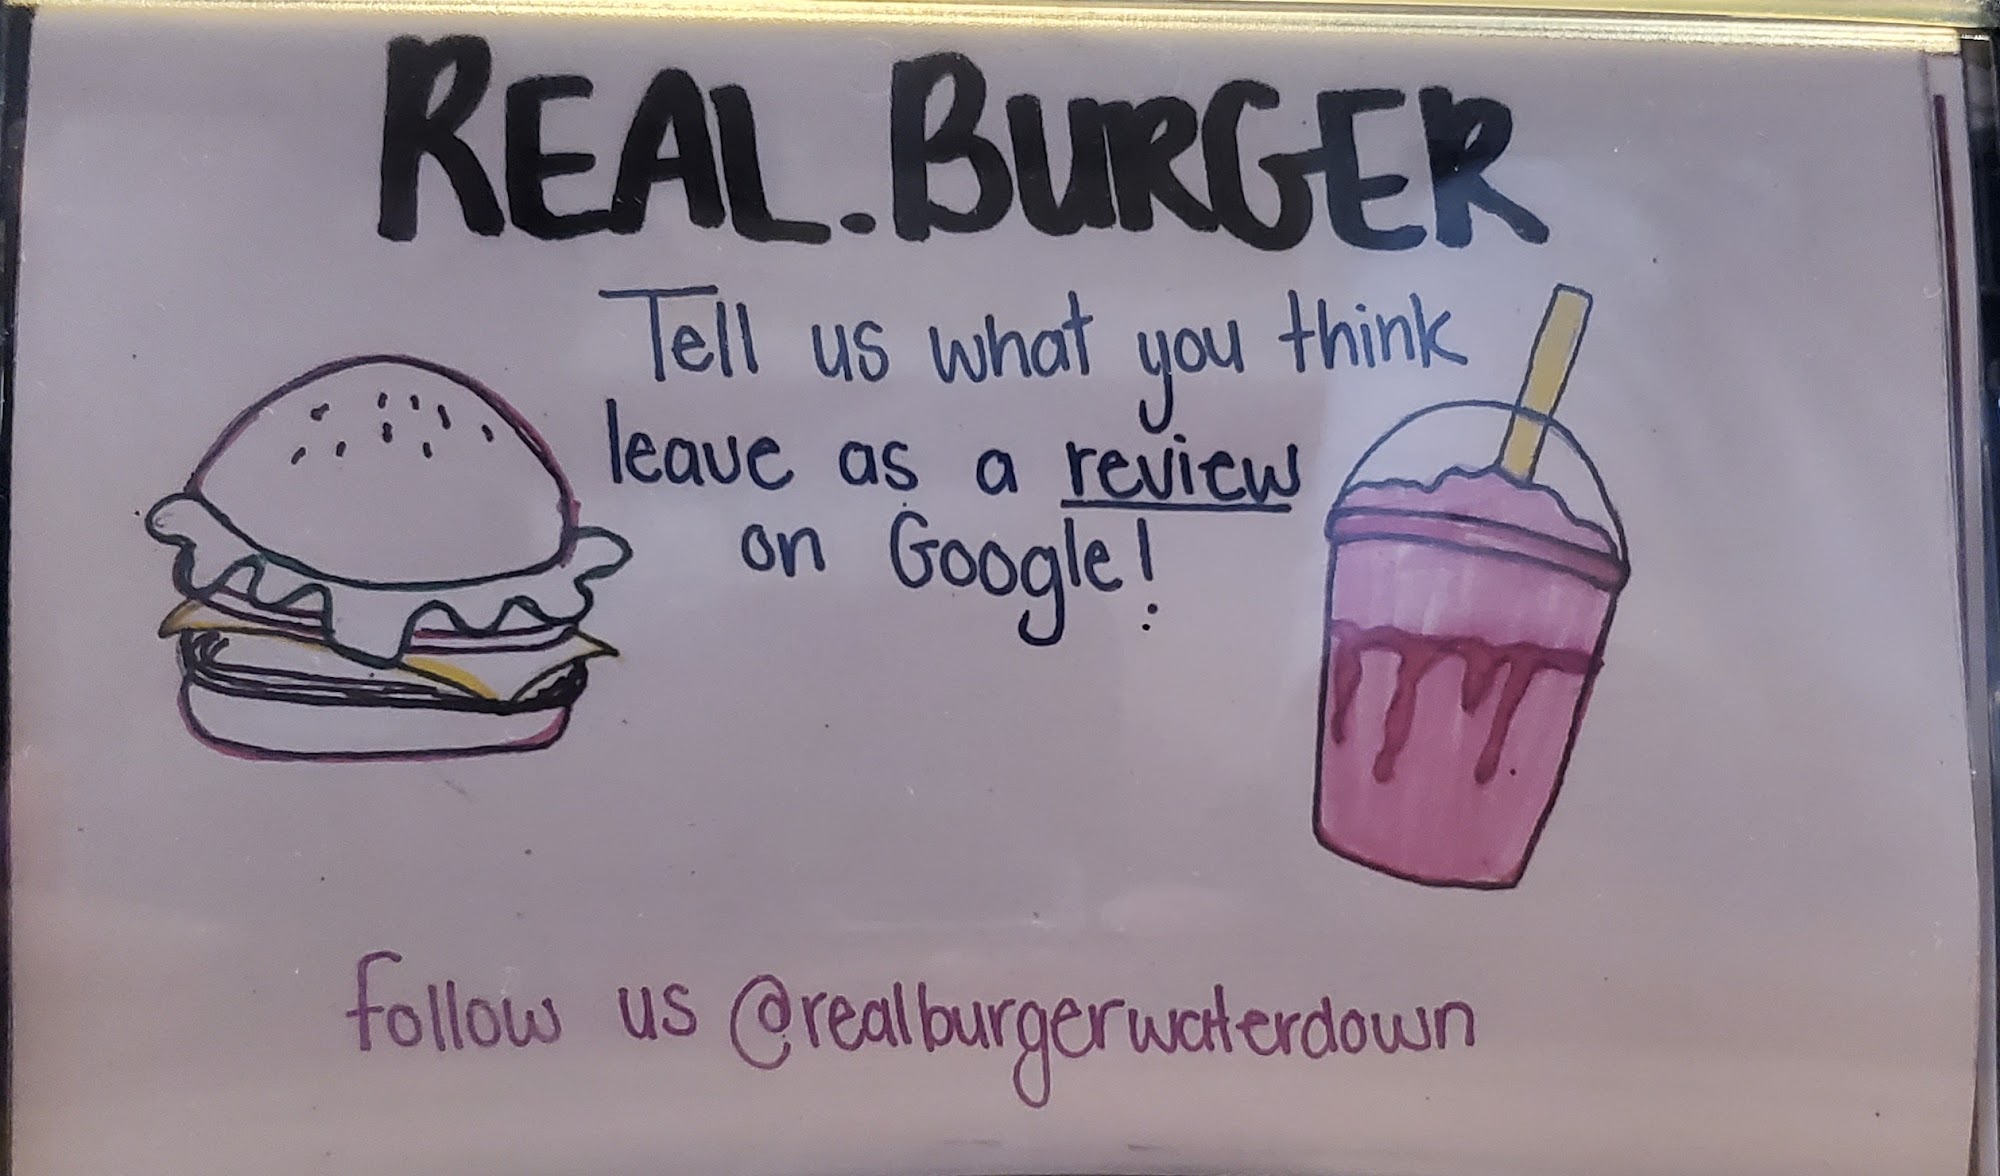 REAL.BURGER
Tell us what you think
leave as a review
on Google!
follow us @realburgerwaterdown